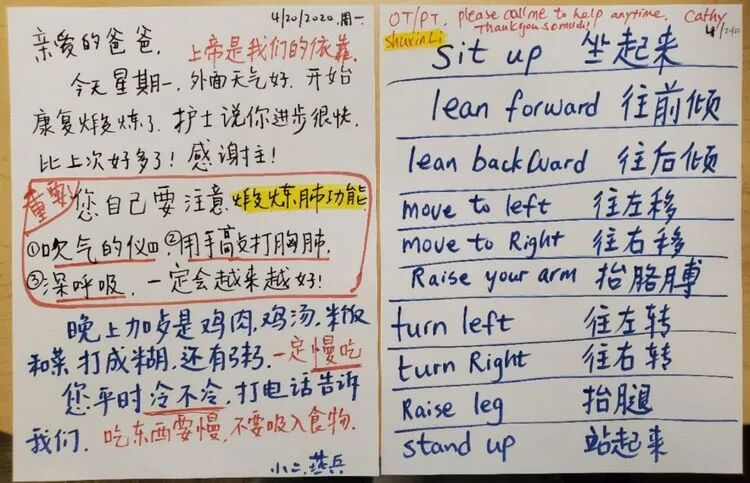 4/20/2020.周一.
亲爱的爸爸, 上帝是我们的依靠
今天星期一,外面天气好.开始
康复煅炼了.护士说你进步很快.
比上次好多了!感谢主!
重要 您自己要注意煅炼肺功能.
①吹气的仪 ②用手敲打胸肺.
③深呼吸,一定会越来越好!
晚上加歺是鸡肉,鸡汤.米饭
和菜打成糊.还有粥.一定慢吃
您平时冷不冷,打电话告诉
我们.吃东西要慢,不要吸入食物.
小二.燕兵
OT/PT. please call me to help anytime. Cathy
Thank you so much!
Shuxin Li 4/20
sit up 坐起来
lean forward 往前倾
lean backward 往后倾
move to left 往左移
move to Right 往右移
Raise your arm 抬胳膊
turn left 往左转
turn Right 往右转
Raise leg 抬腿
stand up 站起来